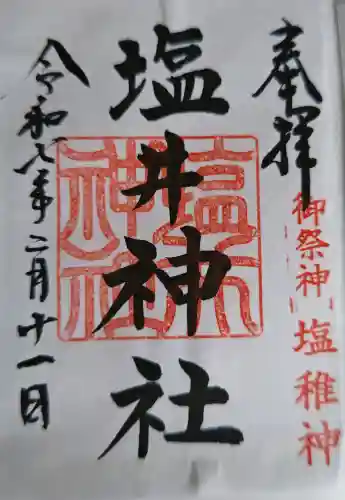 奉拝
御祭神
塩稚神
塩井神社
塩井神社
令和七年二月十一日